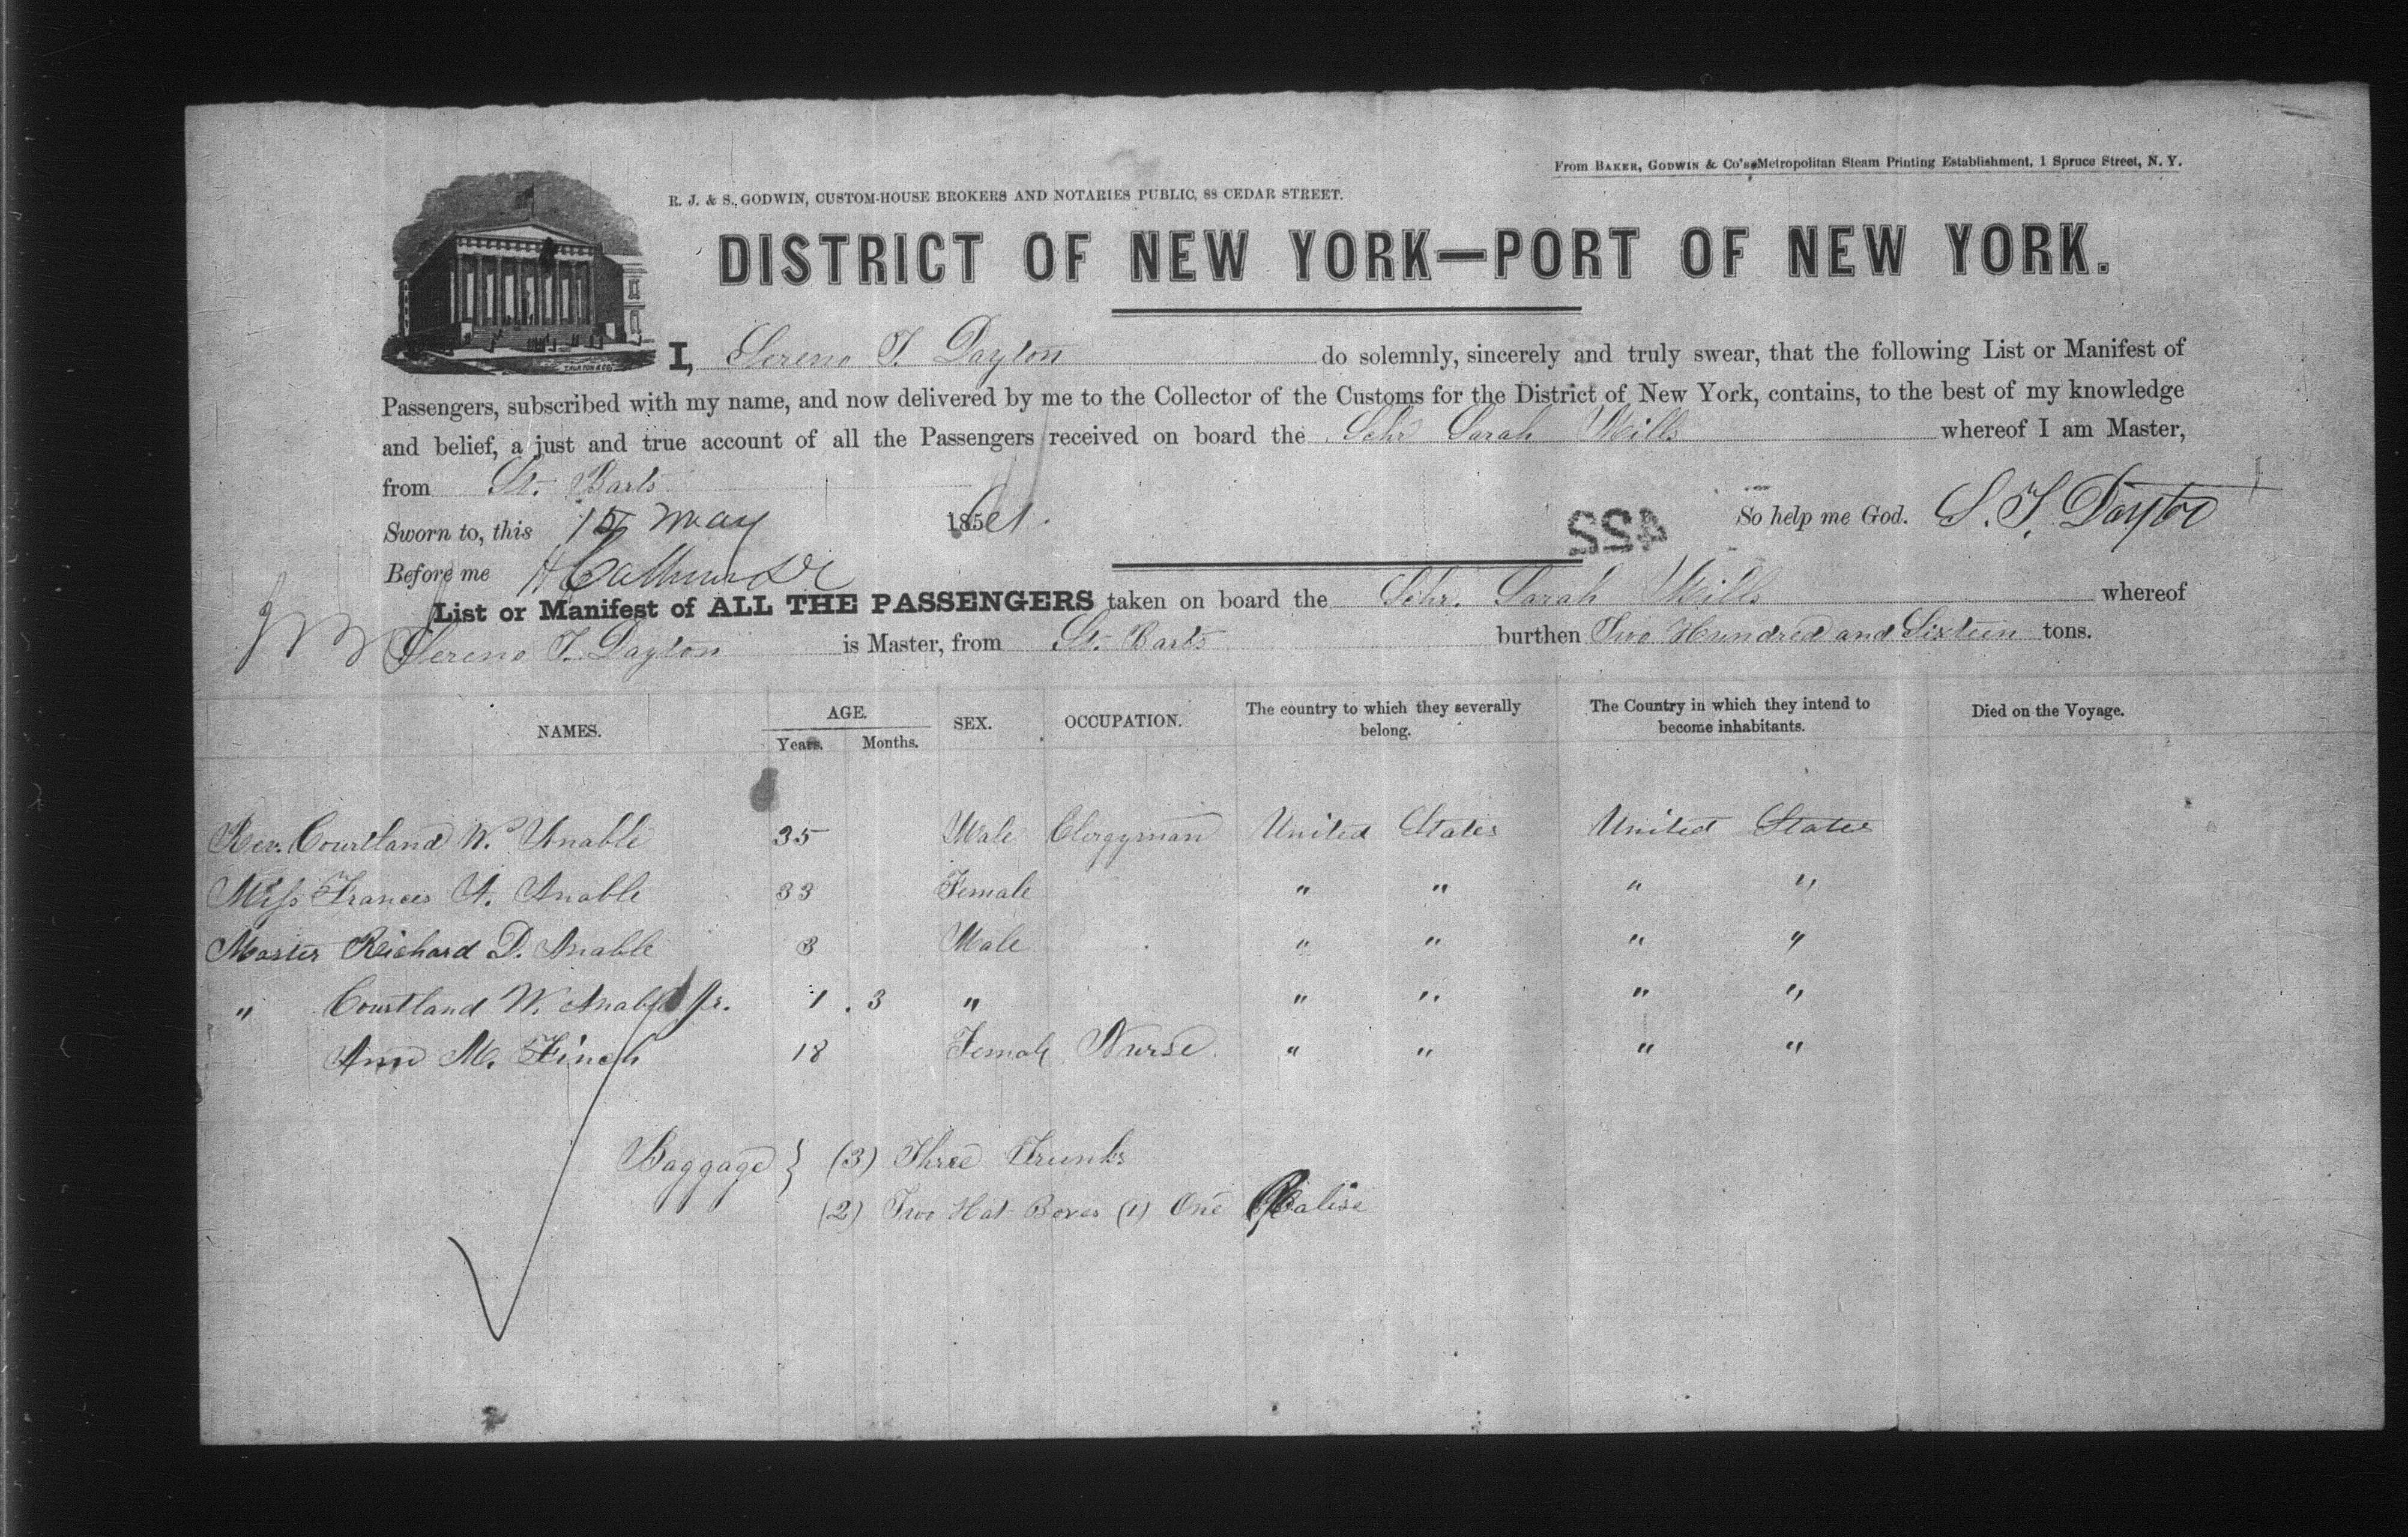 From BAKER, GODWIN & Co's Metropolitan Steam Printing Establishment, 1 Spruce Street, N. Y.
R. J. & S. GODWIN, CUSTOM-HOUSE BROKERS AND NOTARIES PUBLIC, 88 CEDAR STREET.
DISTRICT OF NEW YORK—PORT OF NEW YORK.
I, Sereno T. Dayton do solemnly, sincerely and truly swear, that the following List or Manifest of
Passengers, subscribed with my name, and now delivered by me to the Collector of the Customs for the District of New York, contains, to the best of my knowledge
and belief, a just and true account of all the Passengers received on board the Schr Sarah Mills whereof I am Master,
from St. Barts
Sworn to, this 15 May 1861. 422 So help me God. S. T. Dayton
Before me
List or Manifest of ALL THE PASSENGERS taken on board the Schr. Sarah Mills whereof
Sereno T. Dayton is Master, from St. Barts burthen Two Hundred and Sixteen tons.
NAMES. AGE. Years. Months. SEX. OCCUPATION. The country to which they severally belong. The Country in which they intend to become inhabitants. Died on the Voyage.
Rev. Courtland W. Anable 35 Male Clergyman United States United States
Miss Frances A. Anable 33 Female " " " "
Master Richard D. Anable 3 Male " " " "
" Courtland W. Anable Jr. 1 . 3 " " " " "
Ann M. Finch 18 Female Nurse " " " "
Baggage } (3) Three Trunks
(2) Two Hat Boxes (1) One Valise